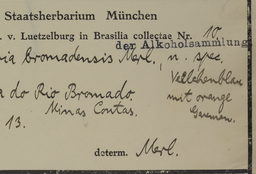 Staatsherbarium München
. v. Luetzelburg in Brasilia collectae Nr. 10.
der Alkoholsammlung
ia bromadensis Merl. n. spec.
Veilchenblau
a do Rio Bromado. mit orange
Minas Contas.
13.
determ. Merl.